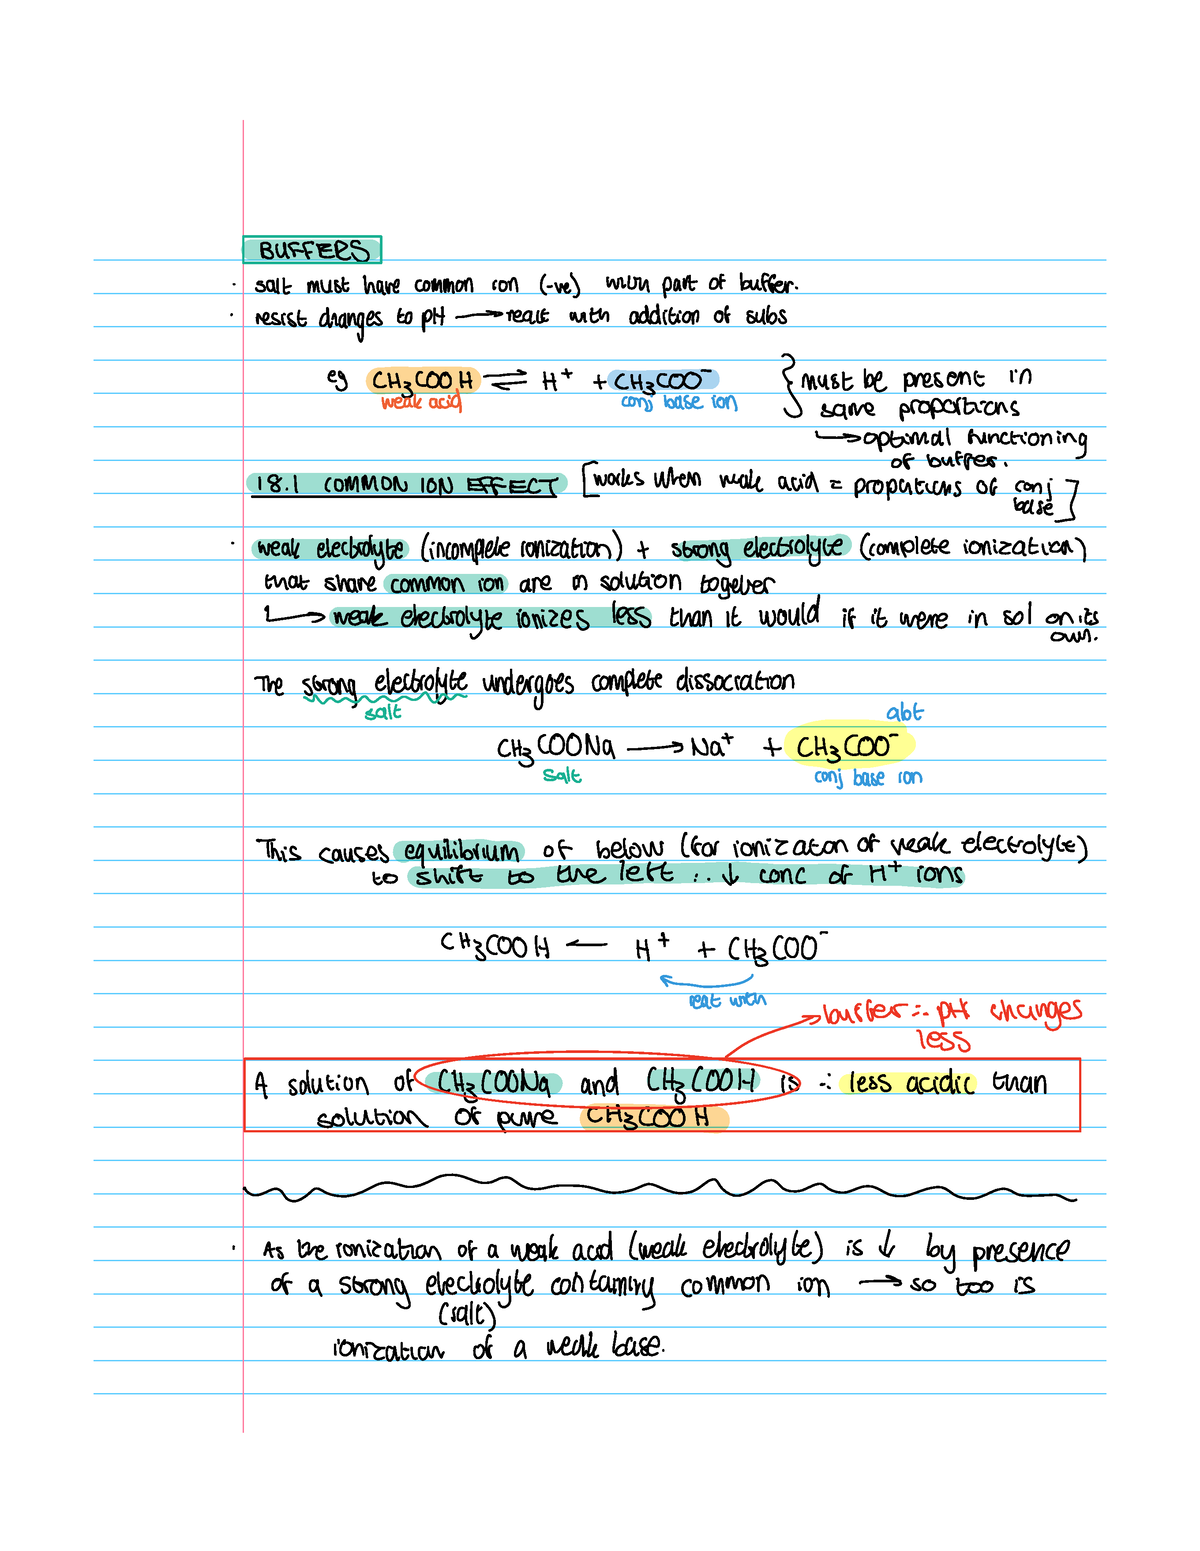 BUFFERS
· salt must have common ion (-ve) with part of buffer.
· resist changes to pH → react with addition of subs
eg CH₃COOH ⇌ H⁺ + CH₃COO⁻ } must be present in
weak acid conj base ion same proportions
↳ optimal functioning
of buffer.
18.1 COMMON ION EFFECT [works when weak acid = proportions of conj
base]
· weak electrolyte (incomplete ionization) + strong electrolyte (complete ionization)
that share common ion are in solution together
↳ weak electrolyte ionizes less than it would if it were in sol on its
own.
The strong electrolyte undergoes complete dissociation
salt abt
CH₃COONa → Na⁺ + CH₃COO⁻
salt conj base ion
This causes equilibrium of below (for ionizaton of weak electrolyte)
to shift to the left ∴ ↓ conc of H⁺ ions
CH₃COOH ← H⁺ + CH₃COO⁻
reat with
buffer ∴ pH changes
less
A solution of CH₃COONa and CH₃COOH is ∴ less acidic than
solution of pure CH₃COOH
· As the ionization of a weak acid (weak electrolyte) is ↓ by presence
of a strong electrolyte containing common ion → so too is
(salt)
ionization of a weak base.